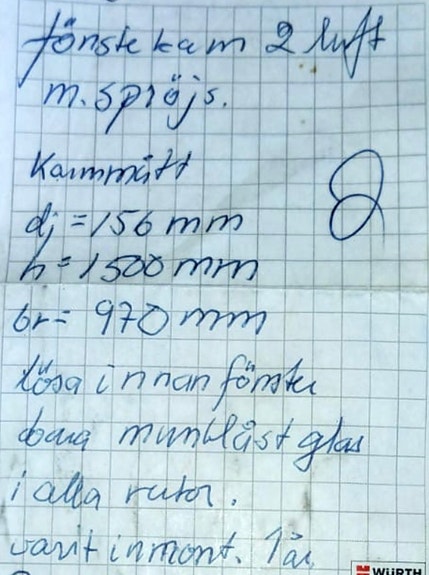 fönstekam 2 luft
m. spröjs.
Karmmått
2
dj = 156 mm
h = 1500 mm
br = 970 mm
lösa innanfönster
bara munblåst glas
i alla rutor.
varit inmont. 1 år
WÜRTH